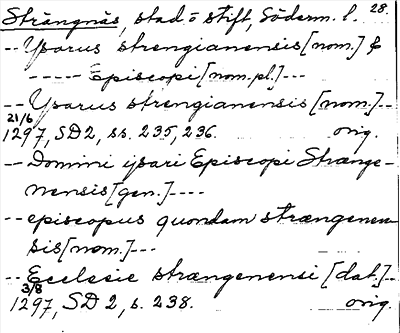 Strängnäs, stad o stift, Söderm. l. 28.
-- Ysarus strengianensis [nom.] &
----- Episcopi [nom. pl.] ---
-- Ysarus strengianensis [nom.] --
21/6
1297, SD 2, ss. 235, 236. orig.
-- Domini ysari Episcopi Strænge-
nensis [gen.] ----
-- episcopus quondam strængenen
sis [nom.] ---
-- Ecclesie strængenensi [dat.] --
3/8
1297, SD 2, s. 238. orig.